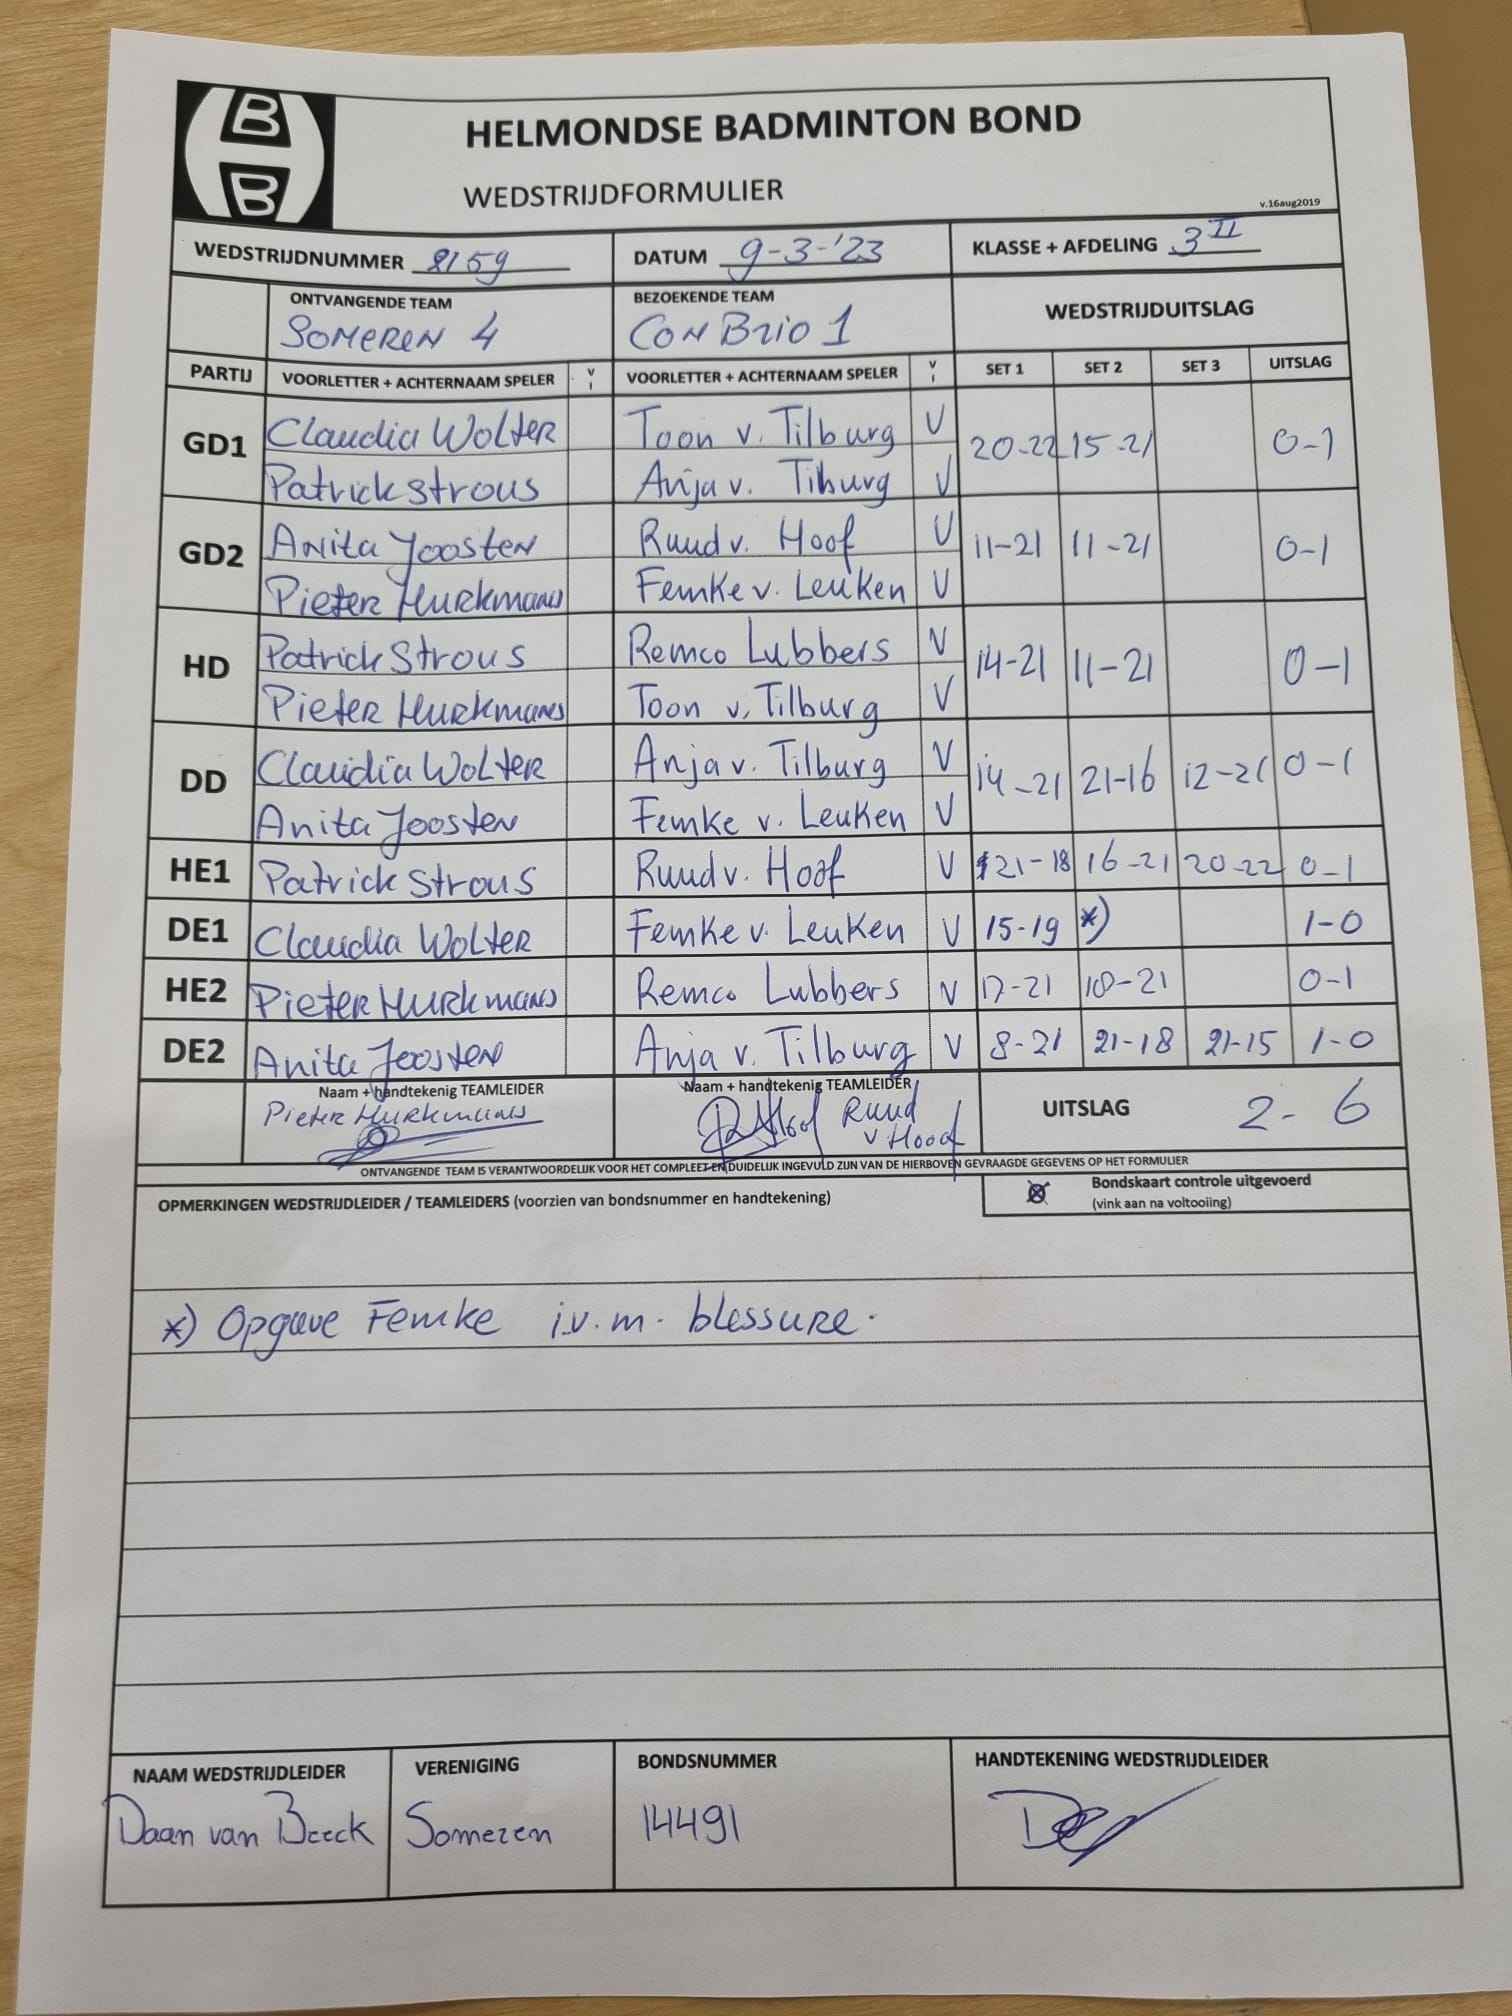 B
B
HELMONDSE BADMINTON BOND
WEDSTRIJDFORMULIER
v.16aug2019
WEDSTRIJDNUMMER 8159 DATUM 9-3-'23 KLASSE + AFDELING 3 II
ONTVANGENDE TEAM BEZOEKENDE TEAM WEDSTRIJDUITSLAG
SOMEREN 4 CON BRIO 1
PARTIJ VOORLETTER + ACHTERNAAM SPELER V I VOORLETTER + ACHTERNAAM SPELER V I SET 1 SET 2 SET 3 UITSLAG
GD1 Claudia Wolter Toon v. Tilburg V 20-22 15-21 0-1
Patrick Strous Anja v. Tilburg V
GD2 Anita Joosten Ruud v. Hoof V 11-21 11-21 0-1
Pieter Hurkmans Femke v. Leuken V
HD Patrick Strous Remco Lubbers V 14-21 11-21 0-1
Pieter Hurkmans Toon v. Tilburg V
DD Claudia Wolter Anja v. Tilburg V 14-21 21-16 12-21 0-1
Anita Joosten Femke v. Leuken V
HE1 Patrick Strous Ruud v. Hoof V 21-18 16-21 20-22 0-1
DE1 Claudia Wolter Femke v. Leuken V 15-19 *) 1-0
HE2 Pieter Hurkmans Remco Lubbers V 17-21 18-21 0-1
DE2 Anita Joosten Anja v. Tilburg V 8-21 21-18 21-15 1-0
Naam + handtekenig TEAMLEIDER Naam + handtekenig TEAMLEIDER UITSLAG 2-6
Pieter Hurkmans Ruud v Hoof
ONTVANGENDE TEAM IS VERANTWOORDELIJK VOOR HET COMPLEET EN DUIDELIJK INGEVULD ZIJN VAN DE HIERBOVEN GEVRAAGDE GEGEVENS OP HET FORMULIER
OPMERKINGEN WEDSTRIJDLEIDER / TEAMLEIDERS (voorzien van bondsnummer en handtekening) Bondskaart controle uitgevoerd
(vink aan na voltooiing)
*) Opgave Femke i.v.m. blessure.
NAAM WEDSTRIJDLEIDER VERENIGING BONDSNUMMER HANDTEKENING WEDSTRIJDLEIDER
Daan van Beeck Someren 14491